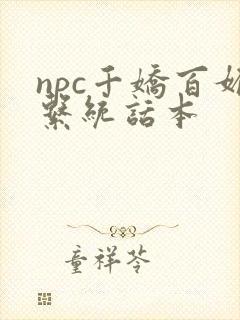 npc千嬌百媚
繫統話本
童祥苓